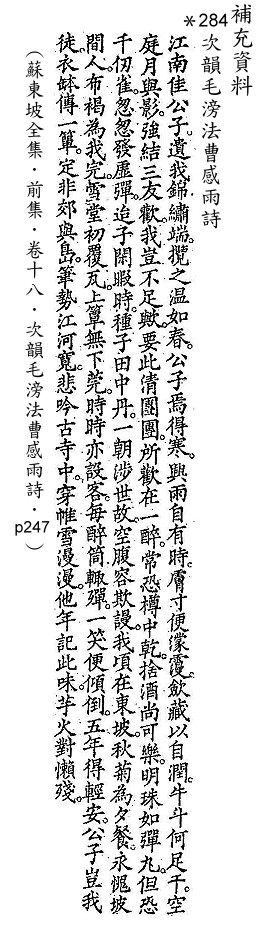 補充資料
*284
次韻毛滂法曹感雨詩
江南佳公子。遺我錦繡端。攬之温如春。公子焉得寒。興雨自有時。膚寸便濛霞。斂藏以自潤。牛斗何足干。空
庭月與影。強結三友歡。我豈不足歟。要此清團團。所歡在一醉。常恐樽中乾。捨酒尚可樂。明珠如彈丸。但恐
千仞雀。忽忽發虛彈。迨子閑暇時。種子田中丹。一朝涉世故。空腹容欺謾。我頃在東坡。秋菊為夕餐。永愧坡
間人。布褐為我完。雪堂初覆瓦。上簟無下莞。時時亦設客。每醉筒輒殫。一笑便傾倒。五年得輕安。公子豈我
徒。衣鉢傳一簞。定非郊與島。筆勢江河寬。悲吟古寺中。穿帷雪漫漫。他年記此味。芋火對懶殘。
（蘇東坡全集．前集．卷十八．次韻毛滂法曹感雨詩．p247）